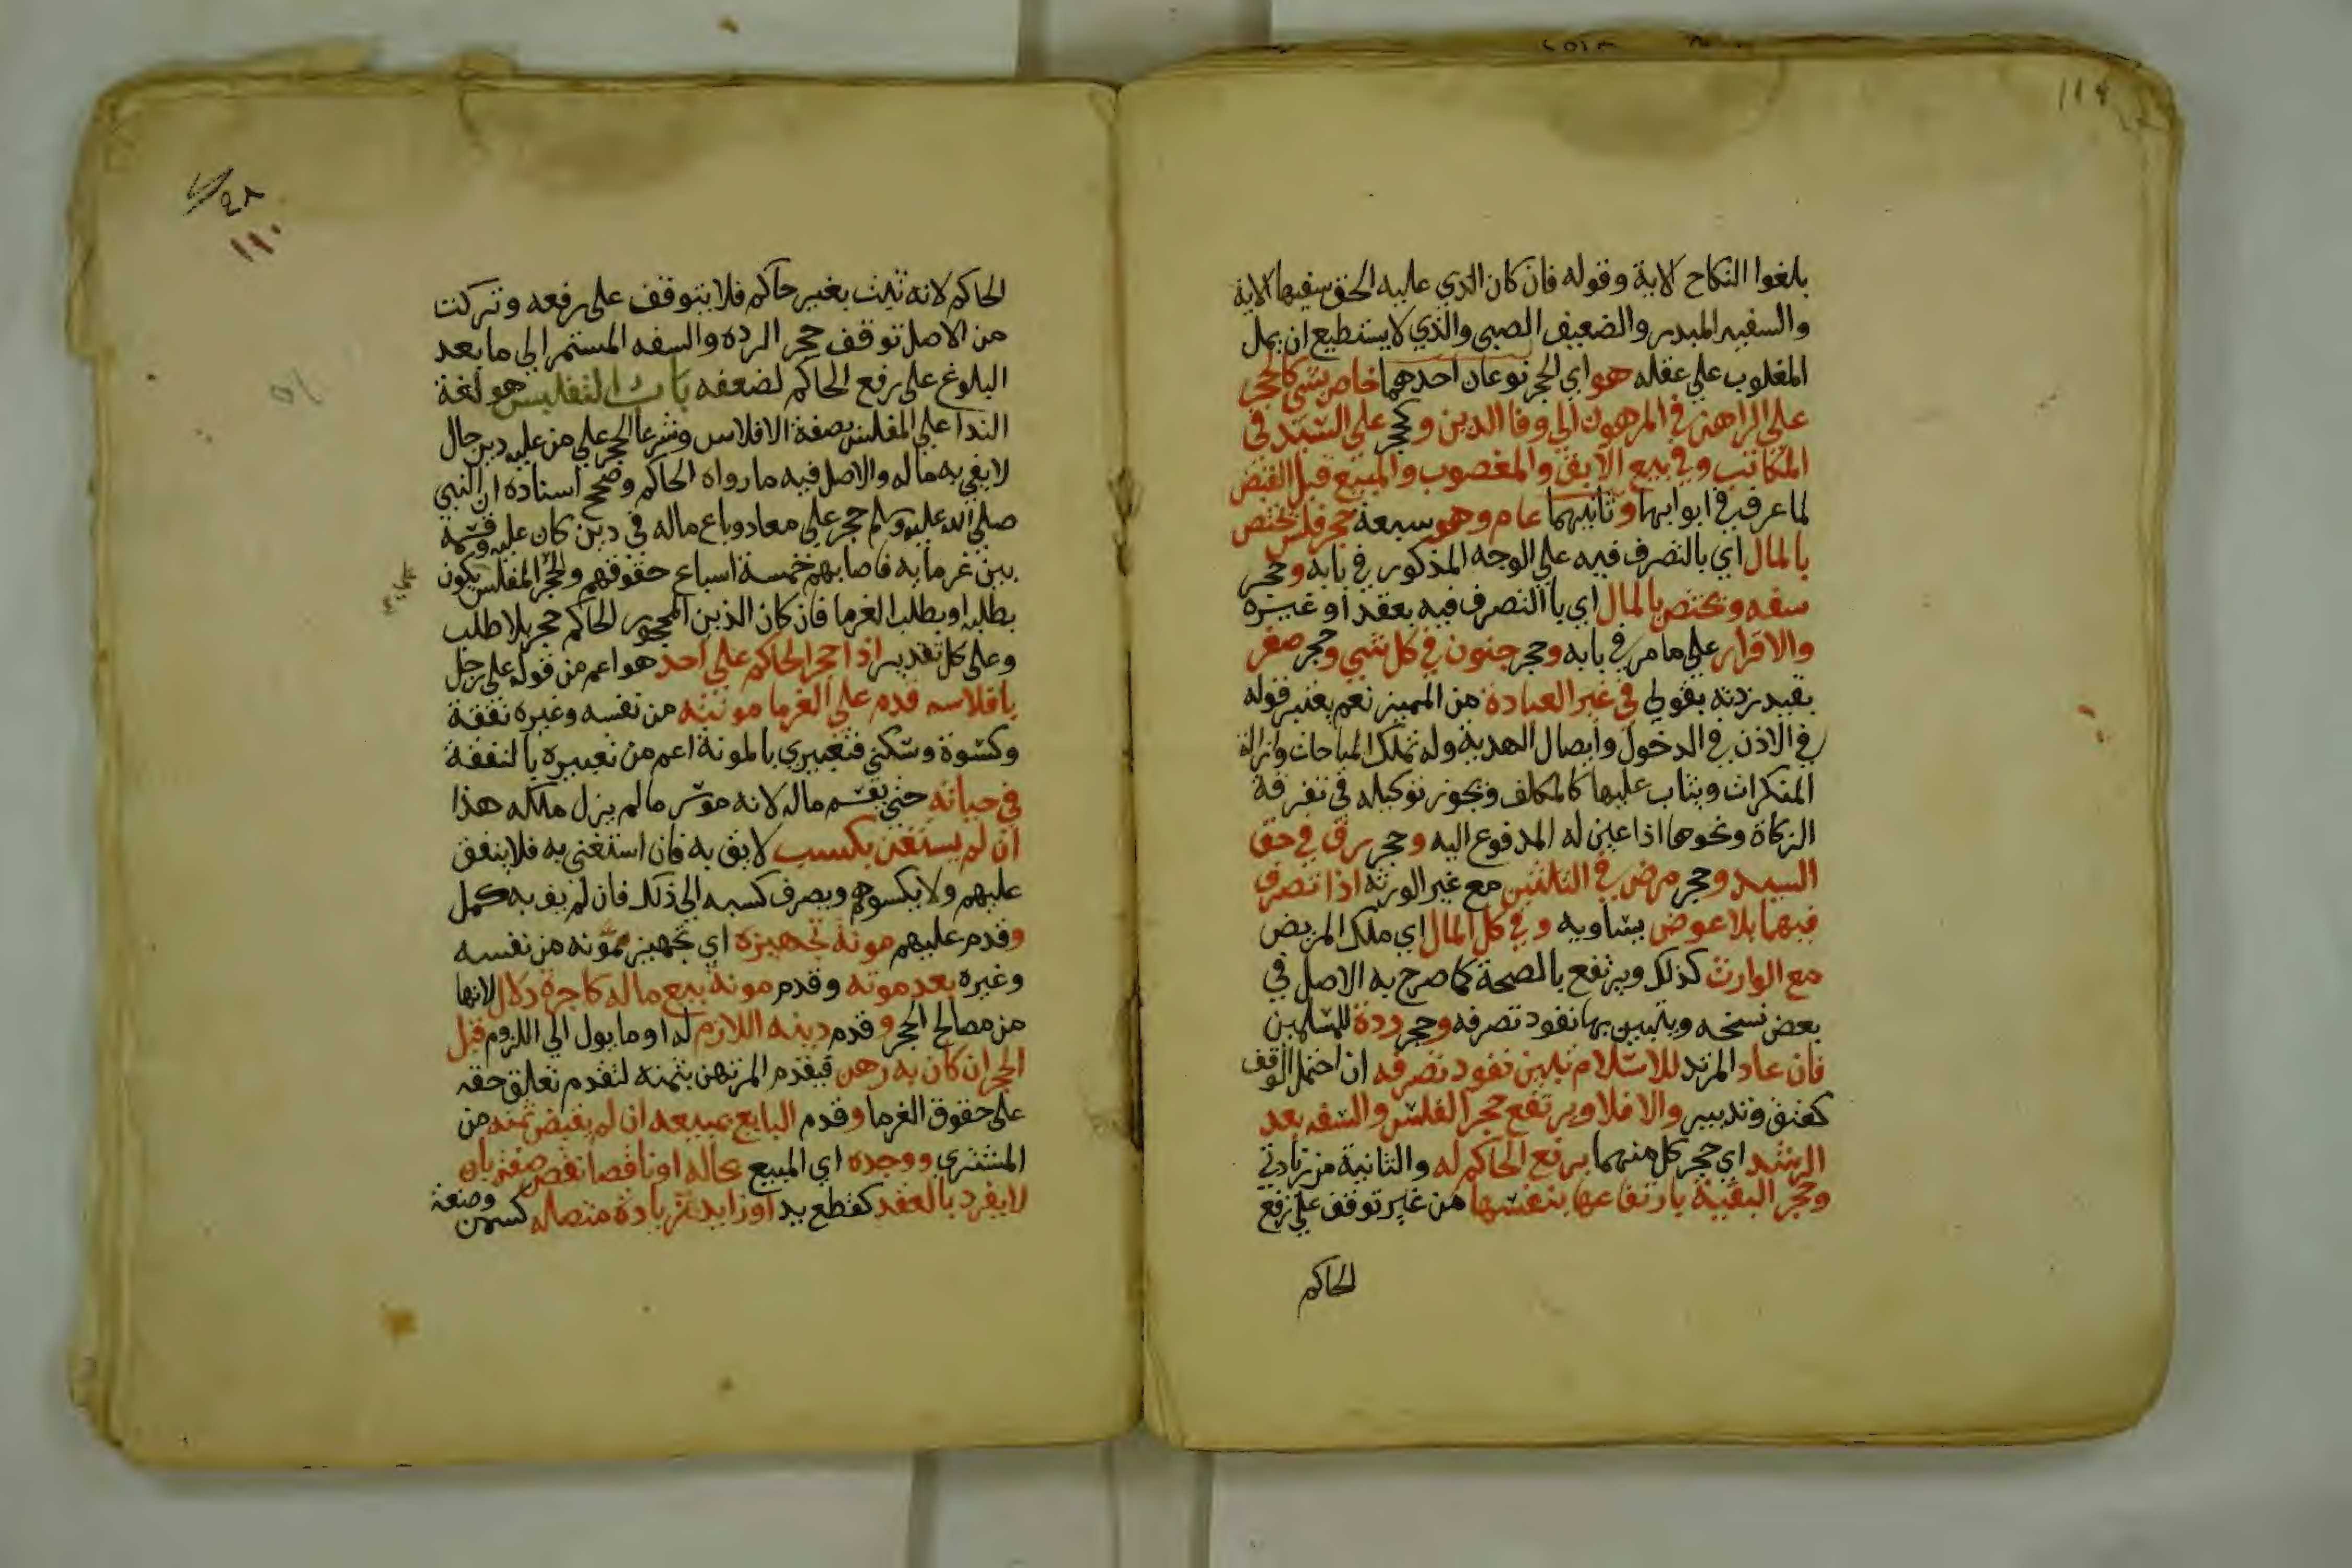 بلغوا النكاح الاية وقوله فان كان الذي عليه الحق سفيها الاية
والسفيه المبذر والضعيف الصبي والذي لا يستطيع ان يمل
المغلوب علي عقله هو اي الحجر نوعان احدهما خاص بشي كالحجر
علي الراهن في المرهون الي وفا الدين وكحجر علي السيد في
المكاتب وفي بيع الابق والمغصوب والمبيع قبل القبض
لما عرف في ابوابها وثانيهما عام وهو سبعة حجر فلس يختص
بالمال اي بالتصرف فيه علي الوجه المذكور في بابه وحجر
سفه ويختص بالمال اي باالتصرف فيه بعقد او غيره
والاقرار علي ما مر في بابه وحجر جنون في كل شي وحجر صغر
بقيد زدته بقولي في غير العبادة من المميز نعم يعتبر قوله
في الاذن في الدخول وايصال الهدية وله تملك المباحات وازالة
المنكرات ويثاب عليها كالمكلف ويجوز توكيله في تفرقة
الزكاة ونحوها اذا عين له المدفوع اليه وحجر رق في حق
السيد وحجر مرض في الثلثين مع غير الورثة اذا تصرف
فيهما بلا عوض يساويه وفي كل المال اي ملك المريض
مع الوارث كذلك ويرتفع بالصحة كما صرح به الاصل في
بعض نسخه ويتبين بها نفوذ تصرفه وحجر ردة للمسلمين
فان عاد المرتد للاسلام تبين نفوذ تصرفه ان احتمل الوقف
كعتق وتدبير والا فلا ويرتفع حجر الفلس والسفه بعد
الرشد اي حجر كل منهما برفع الحاكم له والثانية من زيادتي
وحجر البقية بارتفاعها بنفسها من غير توقف علي رفع
الحاكم
١١٠
الحاكم لانه ثبت بغير حاكم فلا يتوقف على رفعه وتركت
من الاصل توقف حجر الرده والسفه المستمر الي ما بعد
البلوغ على رفع الحاكم لضعفه باب التفليس هو لغة
الندا علي المفلس بصفة الافلاس وشرعا الحجر علي من عليه دين حال
لا يفي به ماله والاصل فيه ما رواه الحاكم وصحح اسناده ان النبي
صلي الله عليه وسلم حجر علي معاذ وباع ماله في دين كان عليه وقسمه
بين غرمايه فاصابهم خمسة اسباع حقوقهم والحجر المفلس يكون
بطلبه او بطلب الغرما فان كان الدين المحجور الحاكم حجر بلا طلب
وعلى كل تقدير اذا حجر الحاكم علي احد هو اعم من قوله على رجل
بافلاسه قدم علي الغرما مونته من نفسه وغيره نفقة
وكسوة وسكني فتعبيري بالمونة اعم من تعبيره بالنفقة
في حياته حتي يقسم ماله لانه موسر ما لم يزل ملكه هذا
ان لم يستغن بكسب لايق به فان استغنى به فلا ينفق
عليهم ولا يكسوهم ويصرف كسبه الي ذلك فان لم يف به كمل
وقدم عليهم مونة تجهيزه اي تجهيز ممونه من نفسه
وغيره بعد موته وقدم مونة بيع ماله كاجرة دلال لانها
من مصالح الحجر وقدم دينه اللازم له او ما يول الي اللزوم قبل
الحجر ان كان به رهن فيقدم المرتهن بثمنه لتقدم تعلق حقه
على حقوق الغرما وقدم البايع بمبيعه ان لم يقبض ثمنه من
المشتري ووجده اي المبيع بحاله او ناقصا نقص صفة بان
لا يفرد بالعقد كقطع يد او زايد زيادة متصله كسمن وصنعة